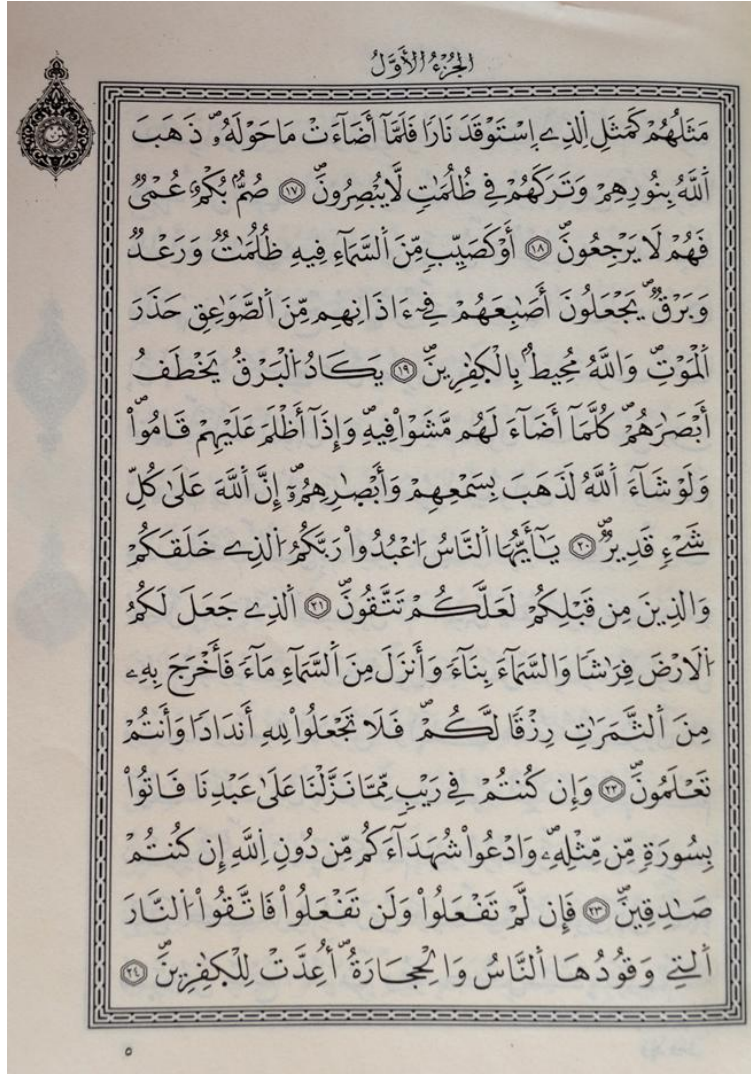 الجُزْءُ الأَوَّلُ
مَثَلُهُمْ كَمَثَلِ اِ۬لذِے اِ۪سْتَوْقَدَ نَارٗا فَلَمَّآ أَضَآءَتْ مَا حَوْلَهُۥ ذَهَبَ
اَ۬للَّهُ بِنُورِهِمْ وَتَرَكَهُمْ فِے ظُلُمَٰتٖ لَّا يُبْصِرُونَۖ ١٧ صُمُّۢ بُكْمٌ عُمْيٞ
فَهُمْ لَا يَرْجِعُونَۖ ١٨ أَوْ كَصَيِّبٖ مِّنَ اَ۬لسَّمَآءِ فِيهِ ظُلُمَٰتٞ وَرَعْدٞ
وَبَرْقٞۖ يَجْعَلُونَ أَصَٰبِعَهُمْ فِےٓ ءَاذَانِهِم مِّنَ اَ۬لصَّوَٰعِقِ حَذَرَ
اَ۬لْمَوْتِۖ وَاللَّهُ مُحِيطُۢ بِالْكٰ۪فِرِينَۖ ١٩ يَكَادُ اُ۬لْبَرْقُ يَخْطَفُ
أَبْصَٰرَهُمْۖ كُلَّمَآ أَضَآءَ لَهُم مَّشَوْاْ فِيهِۖ وَإِذَآ أَظْلَمَ عَلَيْهِمْ قَامُواْۖ
وَلَوْ شَآءَ اَ۬للَّهُ لَذَهَبَ بِسَمْعِهِمْ وَأَبْصٰ۪رِهِمُۥٓۖ إِنَّ اَ۬للَّهَ عَلَىٰ كُلِّ
شَےْءٖ قَدِيرٞۖ ٢٠ يَٰٓأَيُّهَا اَ۬لنَّاسُ اُ۟عْبُدُواْ رَبَّكُمُ اُ۬لذِے خَلَقَكُمْ
وَالذِينَ مِن قَبْلِكُمْ لَعَلَّكُمْ تَتَّقُونَۖ ٢١ اَ۬لذِے جَعَلَ لَكُمُ
اُ۬لَارْضَ فِرَٰشٗا وَالسَّمَآءَ بِنَآءٗ وَأَنزَلَ مِنَ اَ۬لسَّمَآءِ مَآءٗ فَأَخْرَجَ بِهِۦ
مِنَ اَ۬لثَّمَرَٰتِ رِزْقٗا لَّكُمْۖ فَلَا تَجْعَلُواْ لِلهِ أَندَادٗا وَأَنتُمْ
تَعْلَمُونَۖ ٢٢ وَإِن كُنتُمْ فِے رَيْبٖ مِّمَّا نَزَّلْنَا عَلَىٰ عَبْدِنَا فَاتُواْ
بِسُورَةٖ مِّن مِّثْلِهِۦۖ وَادْعُواْ شُهَدَآءَكُم مِّن دُونِ اِ۬للَّهِ إِن كُنتُمْ
صَٰدِقِينَۖ ٢٣ فَإِن لَّمْ تَفْعَلُواْ وَلَن تَفْعَلُواْ فَاتَّقُواْ اُ۬لنَّارَ
اَ۬لتِے وَقُودُهَا اَ۬لنَّاسُ وَالْحِجَارَةُۖ أُعِدَّتْ لِلْكٰ۪فِرِينَۖ ٢٤
٥